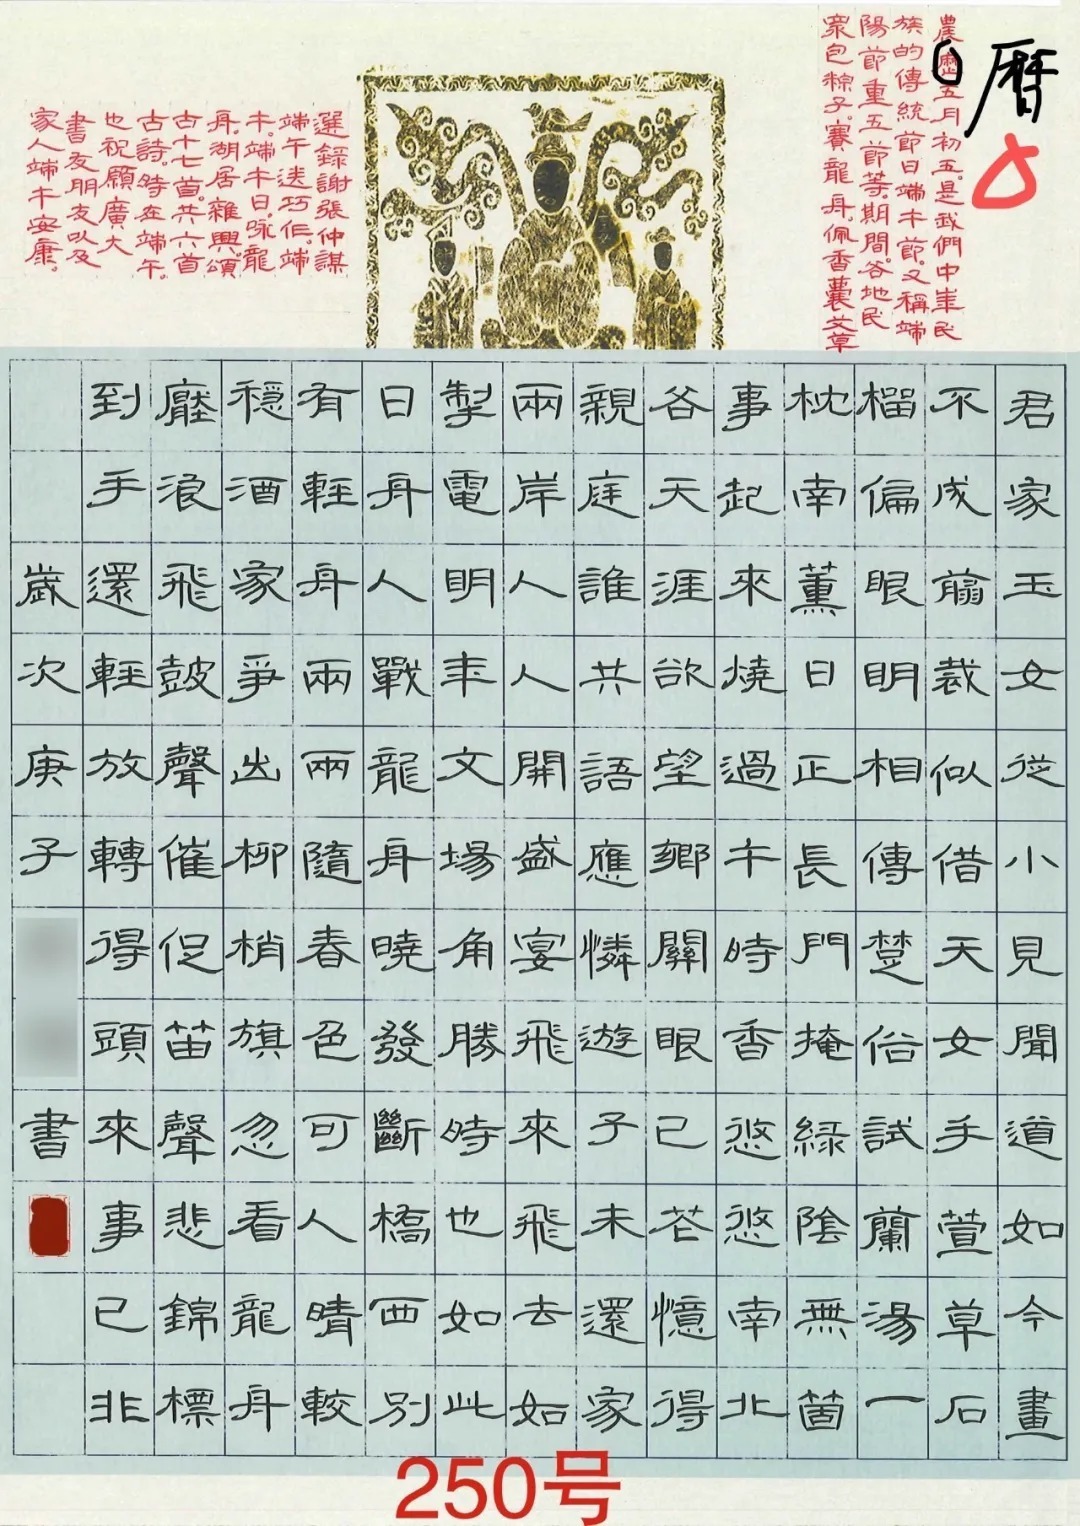 農歷五月初五。是我們中華民
族的傳統節日端午節。又稱端
陽節重五節等。期間。各地民
衆包粽子。賽龍舟。佩香囊艾草
曆
選録謝張仲謀
端午送巧作。端
午。端午日。咏龍
舟。湖居雜興。頌
古十七首。共六首
古詩。時在端午。
也祝願廣大
書友朋友以及
家人端午安康。
君家玉女從小見聞道如今畫
不成翦裁似借天女手萱草石
榴偏眼明相傳楚俗試蘭湯一
枕南薰日正長門掩綠陰無箇
事起來燒過午時香悠悠南北
各天涯欲望鄉關眼已芒憶得
親庭誰共語應憐遊子未還家
兩岸人人開盛宴飛來飛去如
掣電明年文場角勝時也如此
日舟人戰龍舟曉發斷橋西別
有輕舟兩兩隨春色可人晴較
穩酒家爭出柳梢旗忽看龍舟
浪飛鼓聲催促笛聲悲錦標
到手還輕放轉得頭來事已非
歲次庚子
書
250号